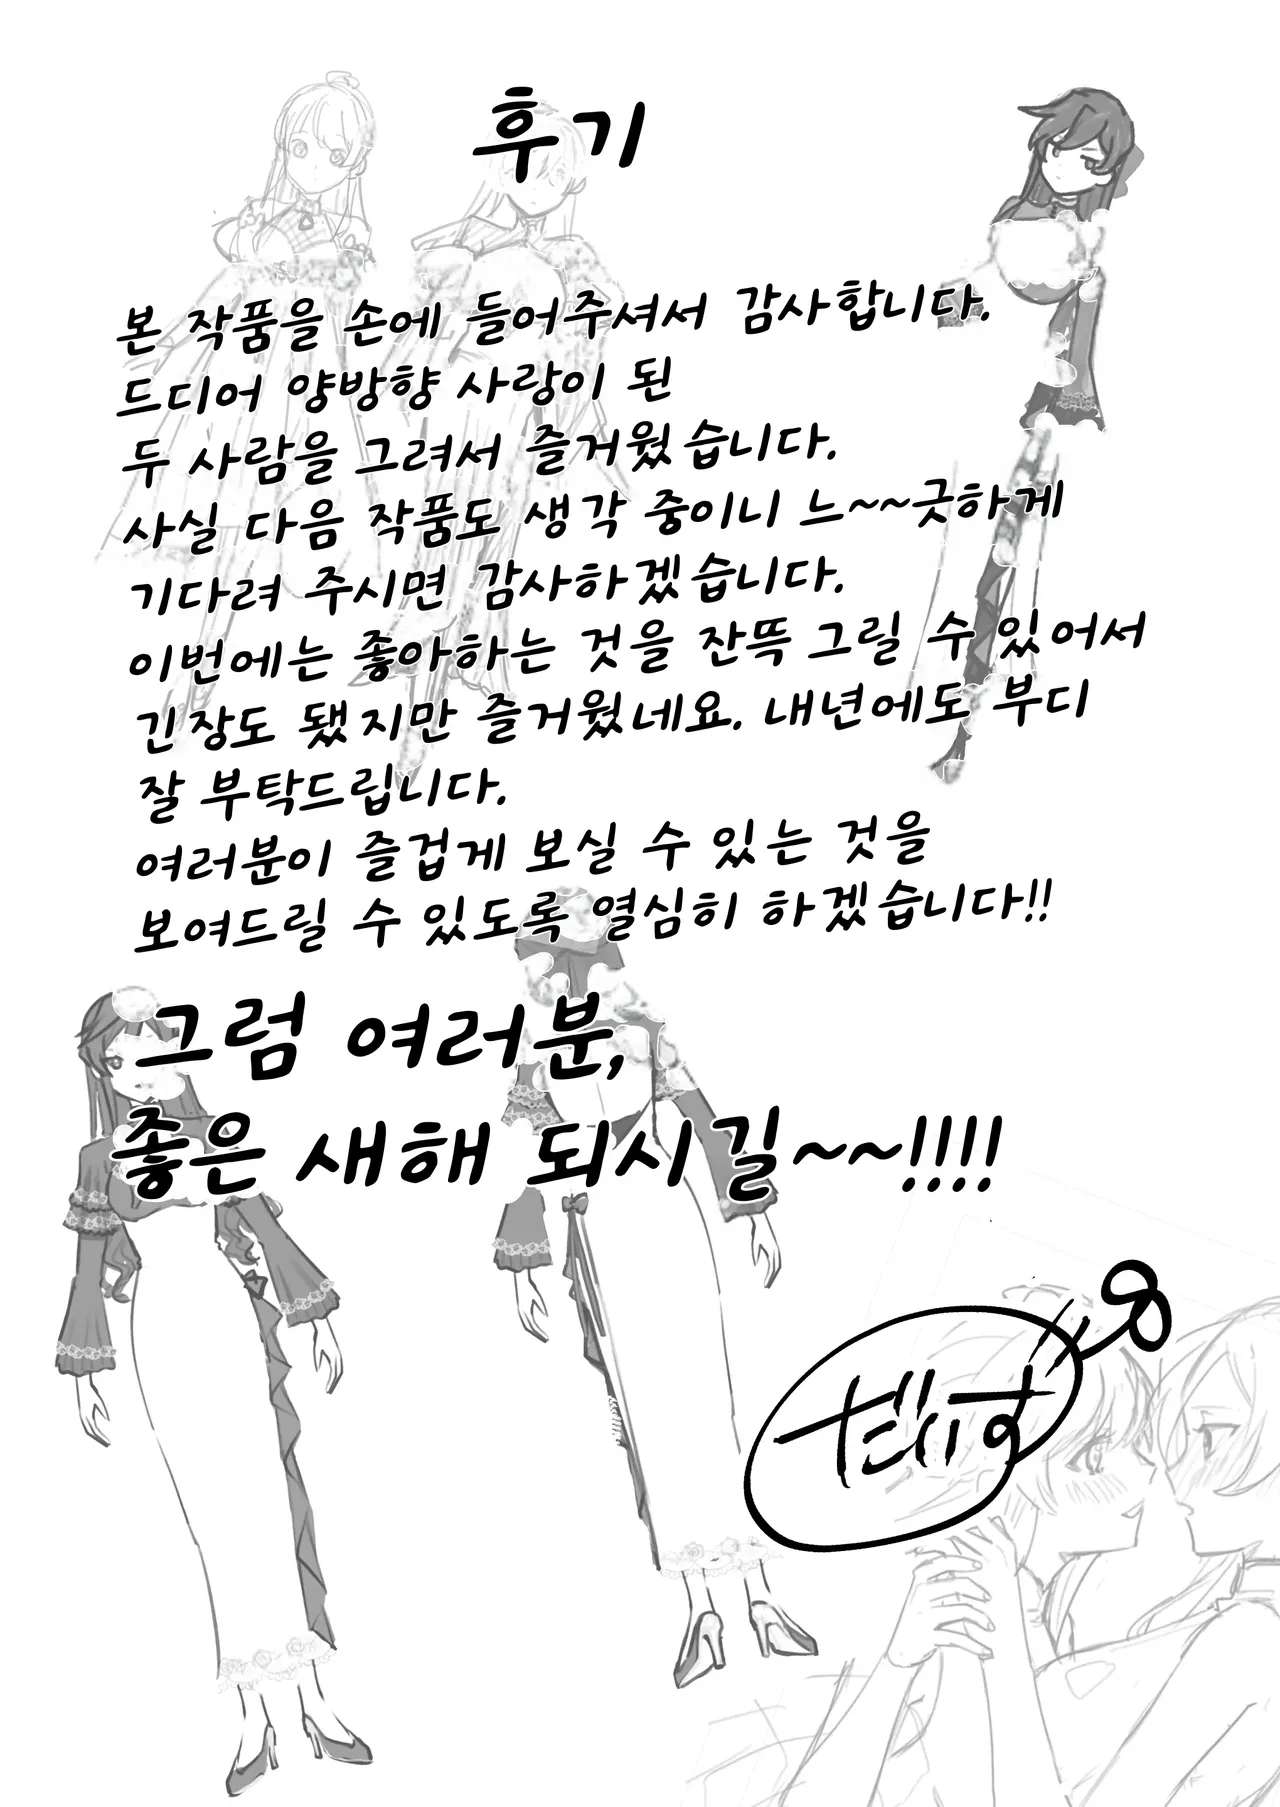 후기
본 작품을 손에 들어주셔서 감사합니다.
드디어 양방향 사랑이 된
두 사람을 그려서 즐거웠습니다.
사실 다음 작품도 생각 중이니 느~~긋하게
기다려 주시면 감사하겠습니다.
이번에는 좋아하는 것을 잔뜩 그릴 수 있어서
긴장도 됐지만 즐거웠네요. 내년에도 부디
잘 부탁드립니다.
여러분이 즐겁게 보실 수 있는 것을
보여드릴 수 있도록 열심히 하겠습니다!!
그럼 여러분,
좋은 새해 되시길~~!!!!